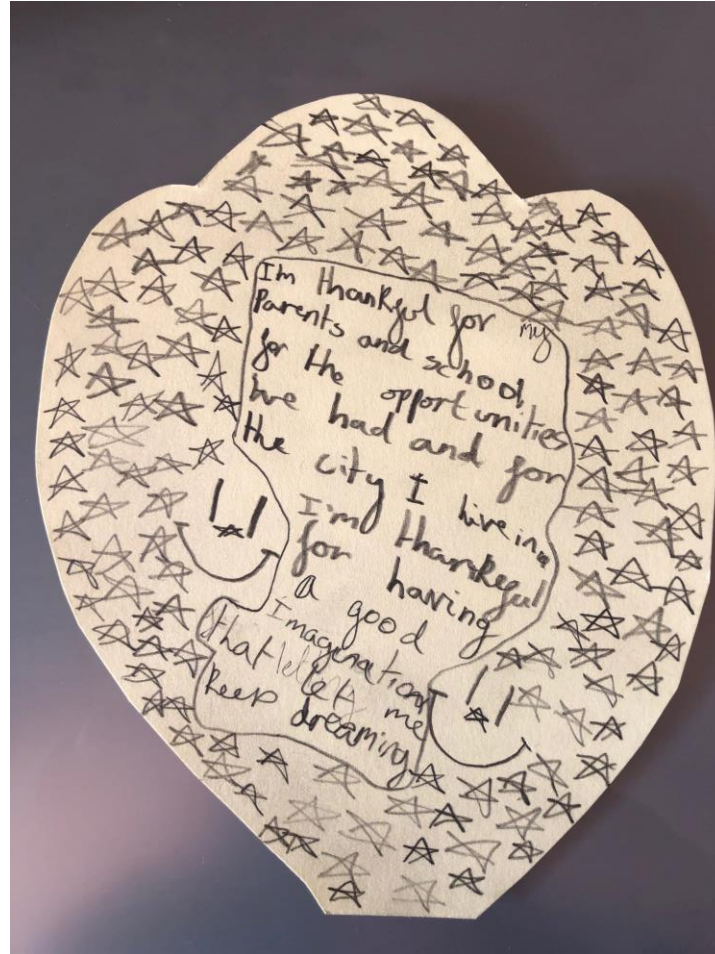 I'm thankful for my
Parents and school,
for the opportunities
Ive had and for
the city I live in.
I'm thankful
for having
a good
Imagination
that lets me
keep dreaming